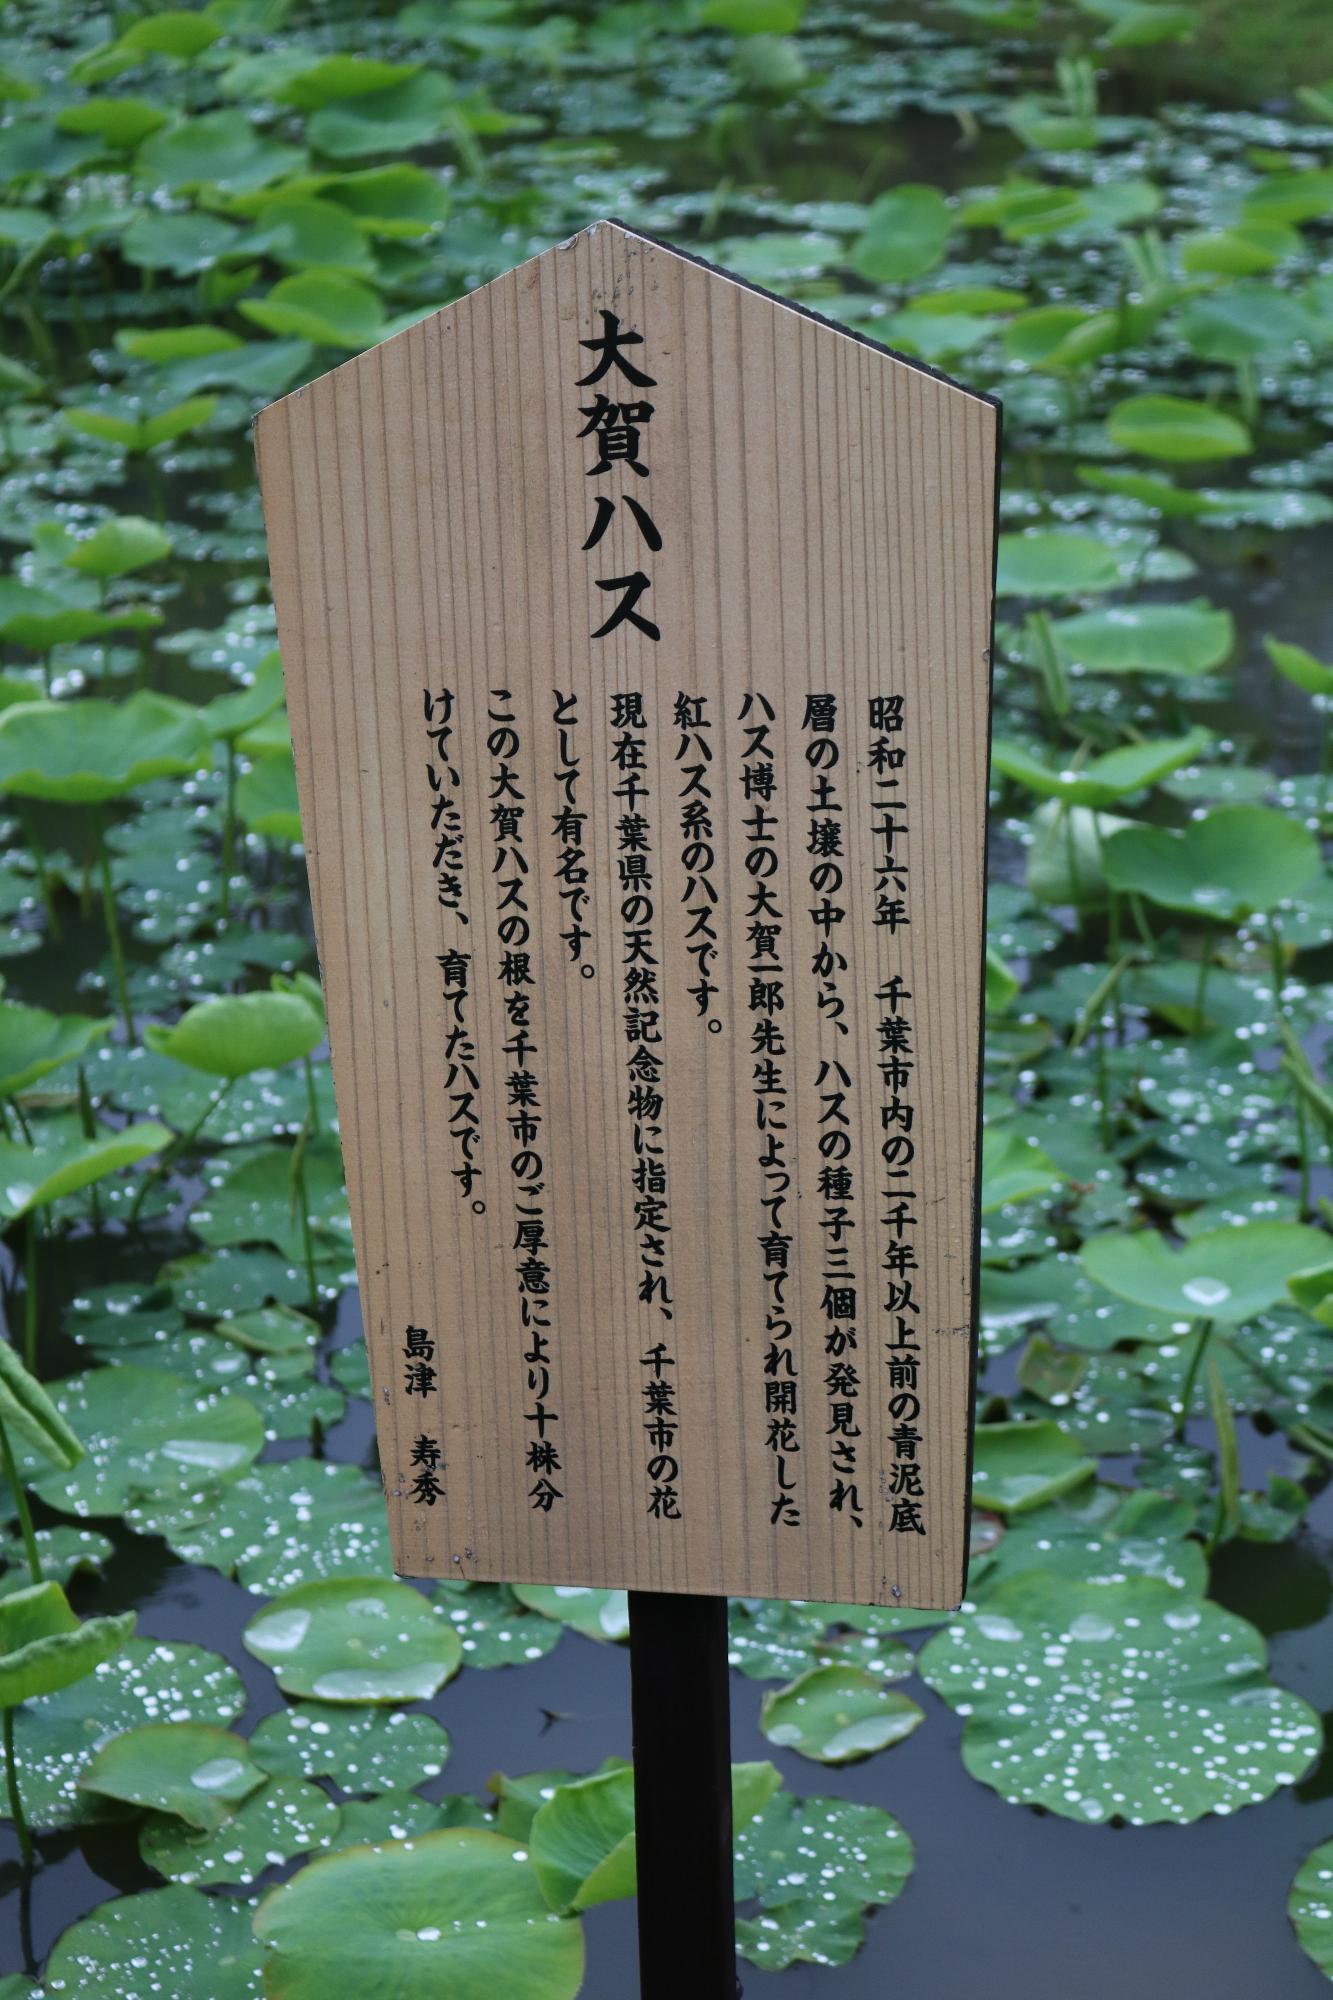 大賀ハス
昭和二十六年　千葉市内の二千年以上前の青泥底
層の土壌の中から、ハスの種子三個が発見され、
ハス博士の大賀一郎先生によって育てられ開花した
紅ハス系のハスです。
現在千葉県の天然記念物に指定され、千葉市の花
として有名です。
この大賀ハスの根を千葉市のご厚意により十株分
けていただき、育てたハスです。
島津　寿秀